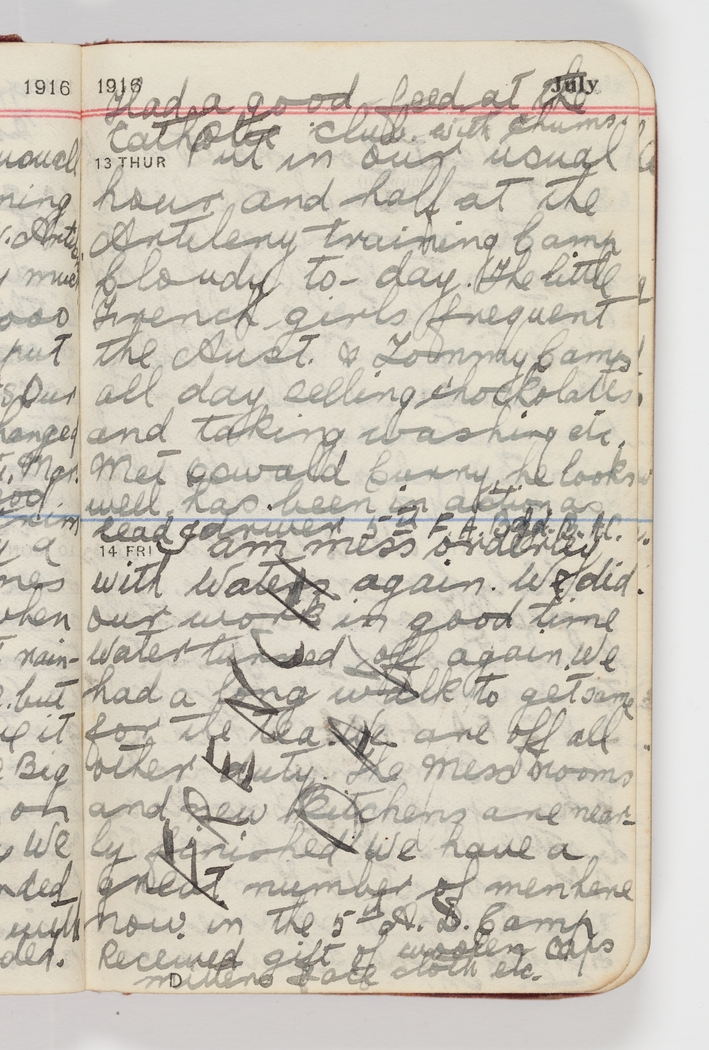 1916
1916 July
Had a good feed at the
Catholic club. with chums.
13 THUR Put in our usual
hour and half at the
Artilery training Camp
bloudy to-day. The little
French girls frequent
the Aust. & Tommy Camps
all day selling chockolates,
and taking washing etc.
Met Oswald Curry, he looks
well, has been in action as
lead driver 5th F.A.
14 FRI I am mess orderley
with Waters again. We did
our work in good time
Water turned off again. We
had a long walk to get some
for the tea. We are off all
other duty. The Mess rooms
and new Kitchens are near-
ly finished We have a
great number of men here
now. in the 5th A. D. Camp
Received gift of woolen caps
mittens face cloth etc.
D
FRENCH
DAY
ning
put
Our
hanged
when
but
it
Big
on
We
with